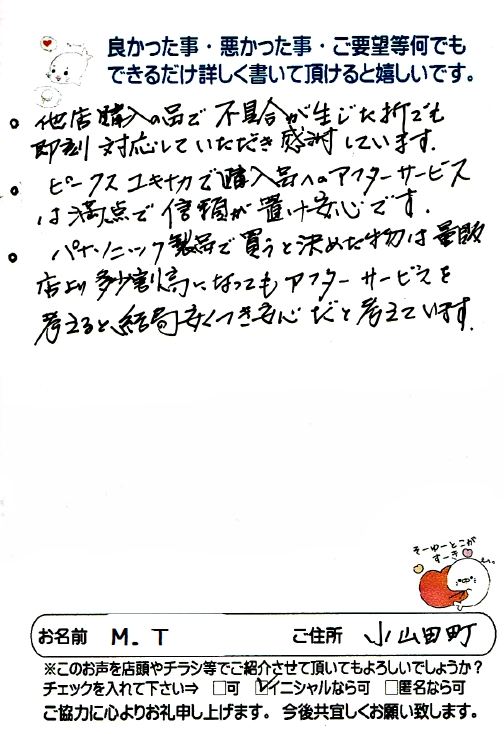 良かった事・悪かった事・ご要望等何でも
できるだけ詳しく書いて頂けると嬉しいです。
。他店購入の品で不具合が生じた折でも
即刻対応していただき感謝しています.
。ピークスユキナカで購入品へのアフターサービス
は満点で信頼が置け安心です.
。パナソニック製品で買うと決めた物は量販
店より多少割高になってもアフターサービスを
考えると、結局安くつき安心だと考えています.
そーゆーとこが
すーき
お名前 M.T ご住所 小山田町
※このお声を店頭やチラシ等でご紹介させて頂いてもよろしいでしょうか？
チェックを入れて下さい⇒ □可 ☑イニシャルなら可 □匿名なら可
ご協力に心よりお礼申し上げます。今後共宜しくお願い致します。